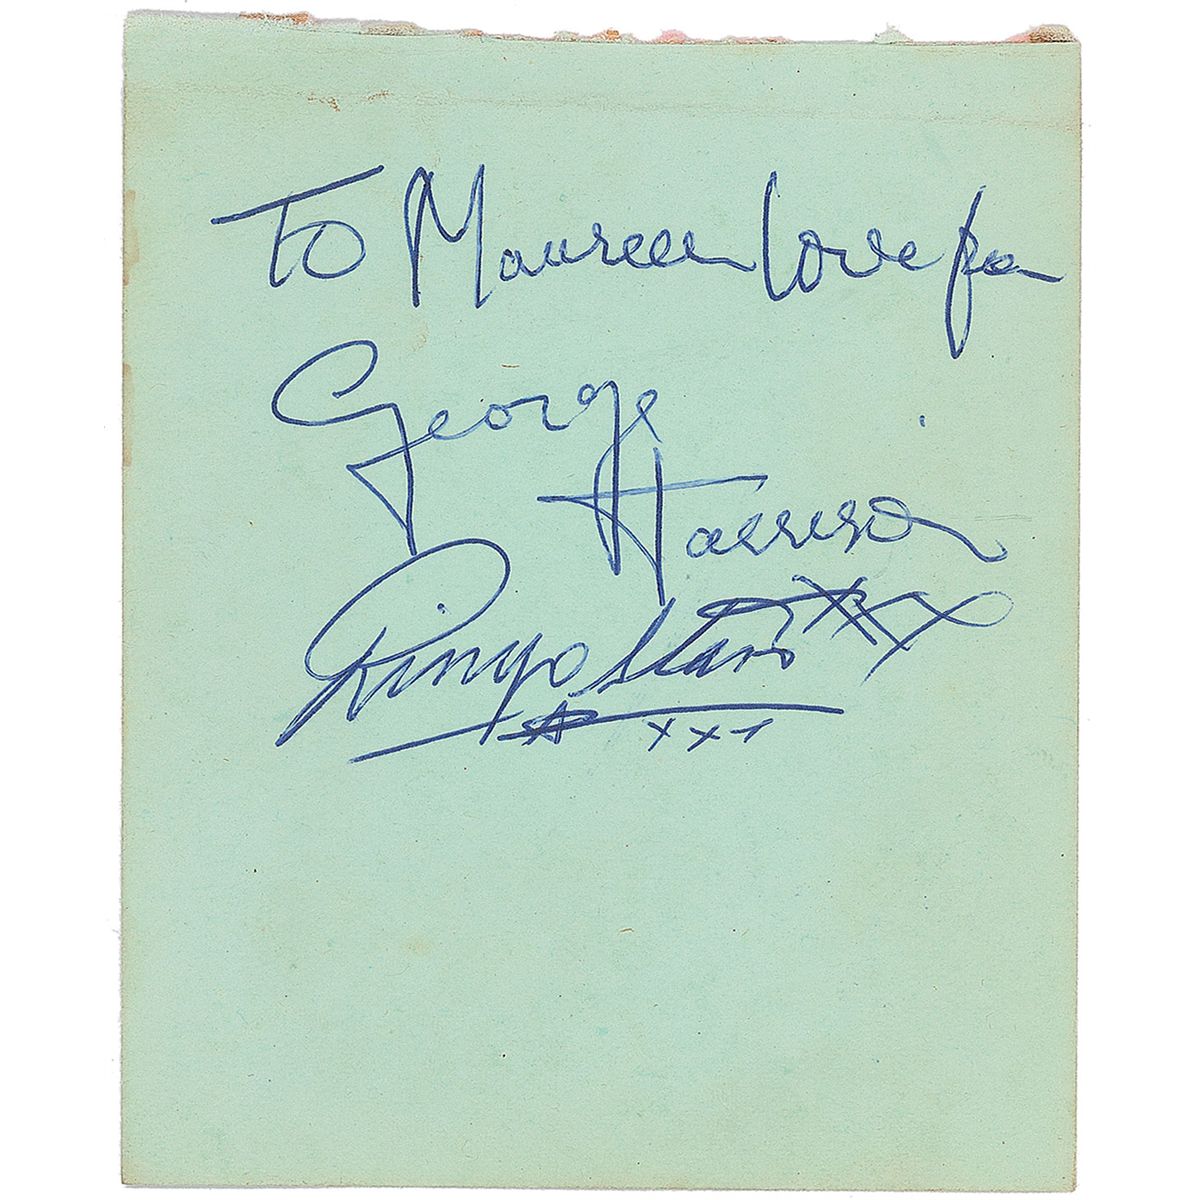 To Maureen love from
George
Harrison
xxx
Ringo Starr
xxx